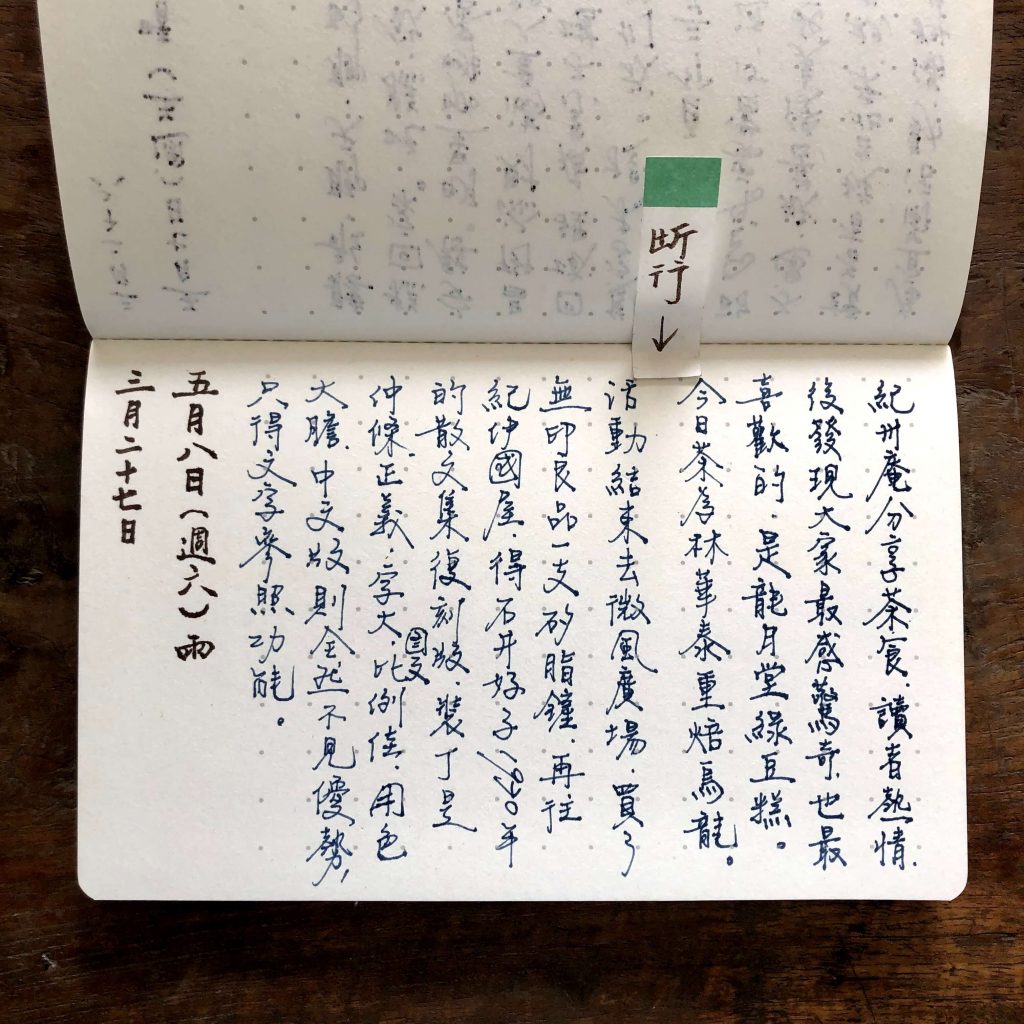 断行↓
紀州庵分享茶宸、讀者熱情、
後發現大家最感驚奇、也最
喜歡的、是龍月堂綠豆糕。
今日茶為林華泰重焙烏龍。
活動結束去微風廣場、買了
無印良品一支矽脂鐘、再往
紀伊國屋、得石井好子1940年
的散文集復刻版、裝丁是
仲條正義、字大、圖文比例佳、用色
大膽、中文版則全然不見優勢，
只得文字參照功能。
五月八日(週六)雨
三月二十七日